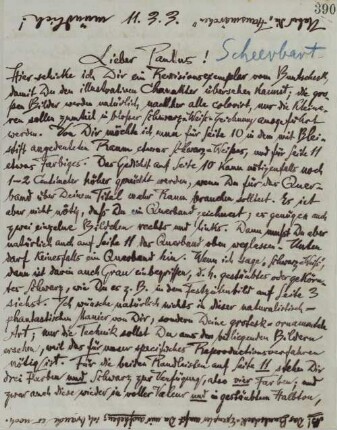 390
mündlich! 11.3.3.
Lieber Paulus! Scheerbart
Hier schicke ich Dir ein Revisionsexemplar vom Buntscheck,
damit Du den illustrativen Charakter übersehen kannst; die gro-
ßen Bilder werden natürlich nachher alle colorirt, nur die kleine-
ren sollen zumteil in bloßer Schwarz-Weiß-Zeichnung ausgeführt
werden. Von Dir möchte ich nun für Seite 10 in dem mit Blei-
stift angedeuteten Raum etwas Schwarz-Weißes, und für Seite 11
etwas Farbiges. Das Gedicht auf Seite 10 kann nötigenfalls noch
1–2 Centimeter höher gerückt werden, wenn Du für das Quer-
band über Deinem Titel mehr Raum brauchen solltest. Es ist
aber nicht nötig, daß Du ein Querband zeichnest; es genügen auch
zwei einzelne Bildchen rechts und links. Dann mußt Du aber
natürlich auch auf Seite 11 das Querband oben weglassen. Unten
darf keinesfalls ein Querband hin. Wenn ich sage „Schwarz-Weiß",
dann ist darin auch Grau einbegriffen, d. h. gestäubtes oder gekörn-
tes Schwarz, wie Du es z. B. in den auf Seite 3
siehst. Ich wünsche natürlich nichts in dieser naturalistisch-
phantastischen Manier von Dir, sondern Deine grotesk-ornamentale
Art; nur die Technik sollst Du aus den beiliegenden Bildern
ersehn, weil das für unser specifisches Reproductionsverfahren
nötig ist. Für die beiden Randleisten auf Seite 11 stehn Dir
drei Farben und Schwarz zur Verfügung, also vier Farben; und
zwar auch diese wieder in voller Valeur und in gestäubten Halbton,